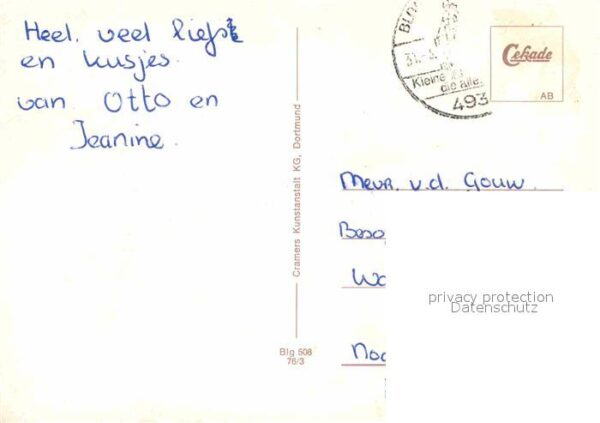 Heel veel liefs
en kusjes.
van Otto en
Jeanine.
Cramers Kunstanstalt KG, Dortmund
Blg 508
76/3
Kleine
die alle
493
Cekade
AB
Mevr. v.d. Gouw.
privacy protection
Datenschutz